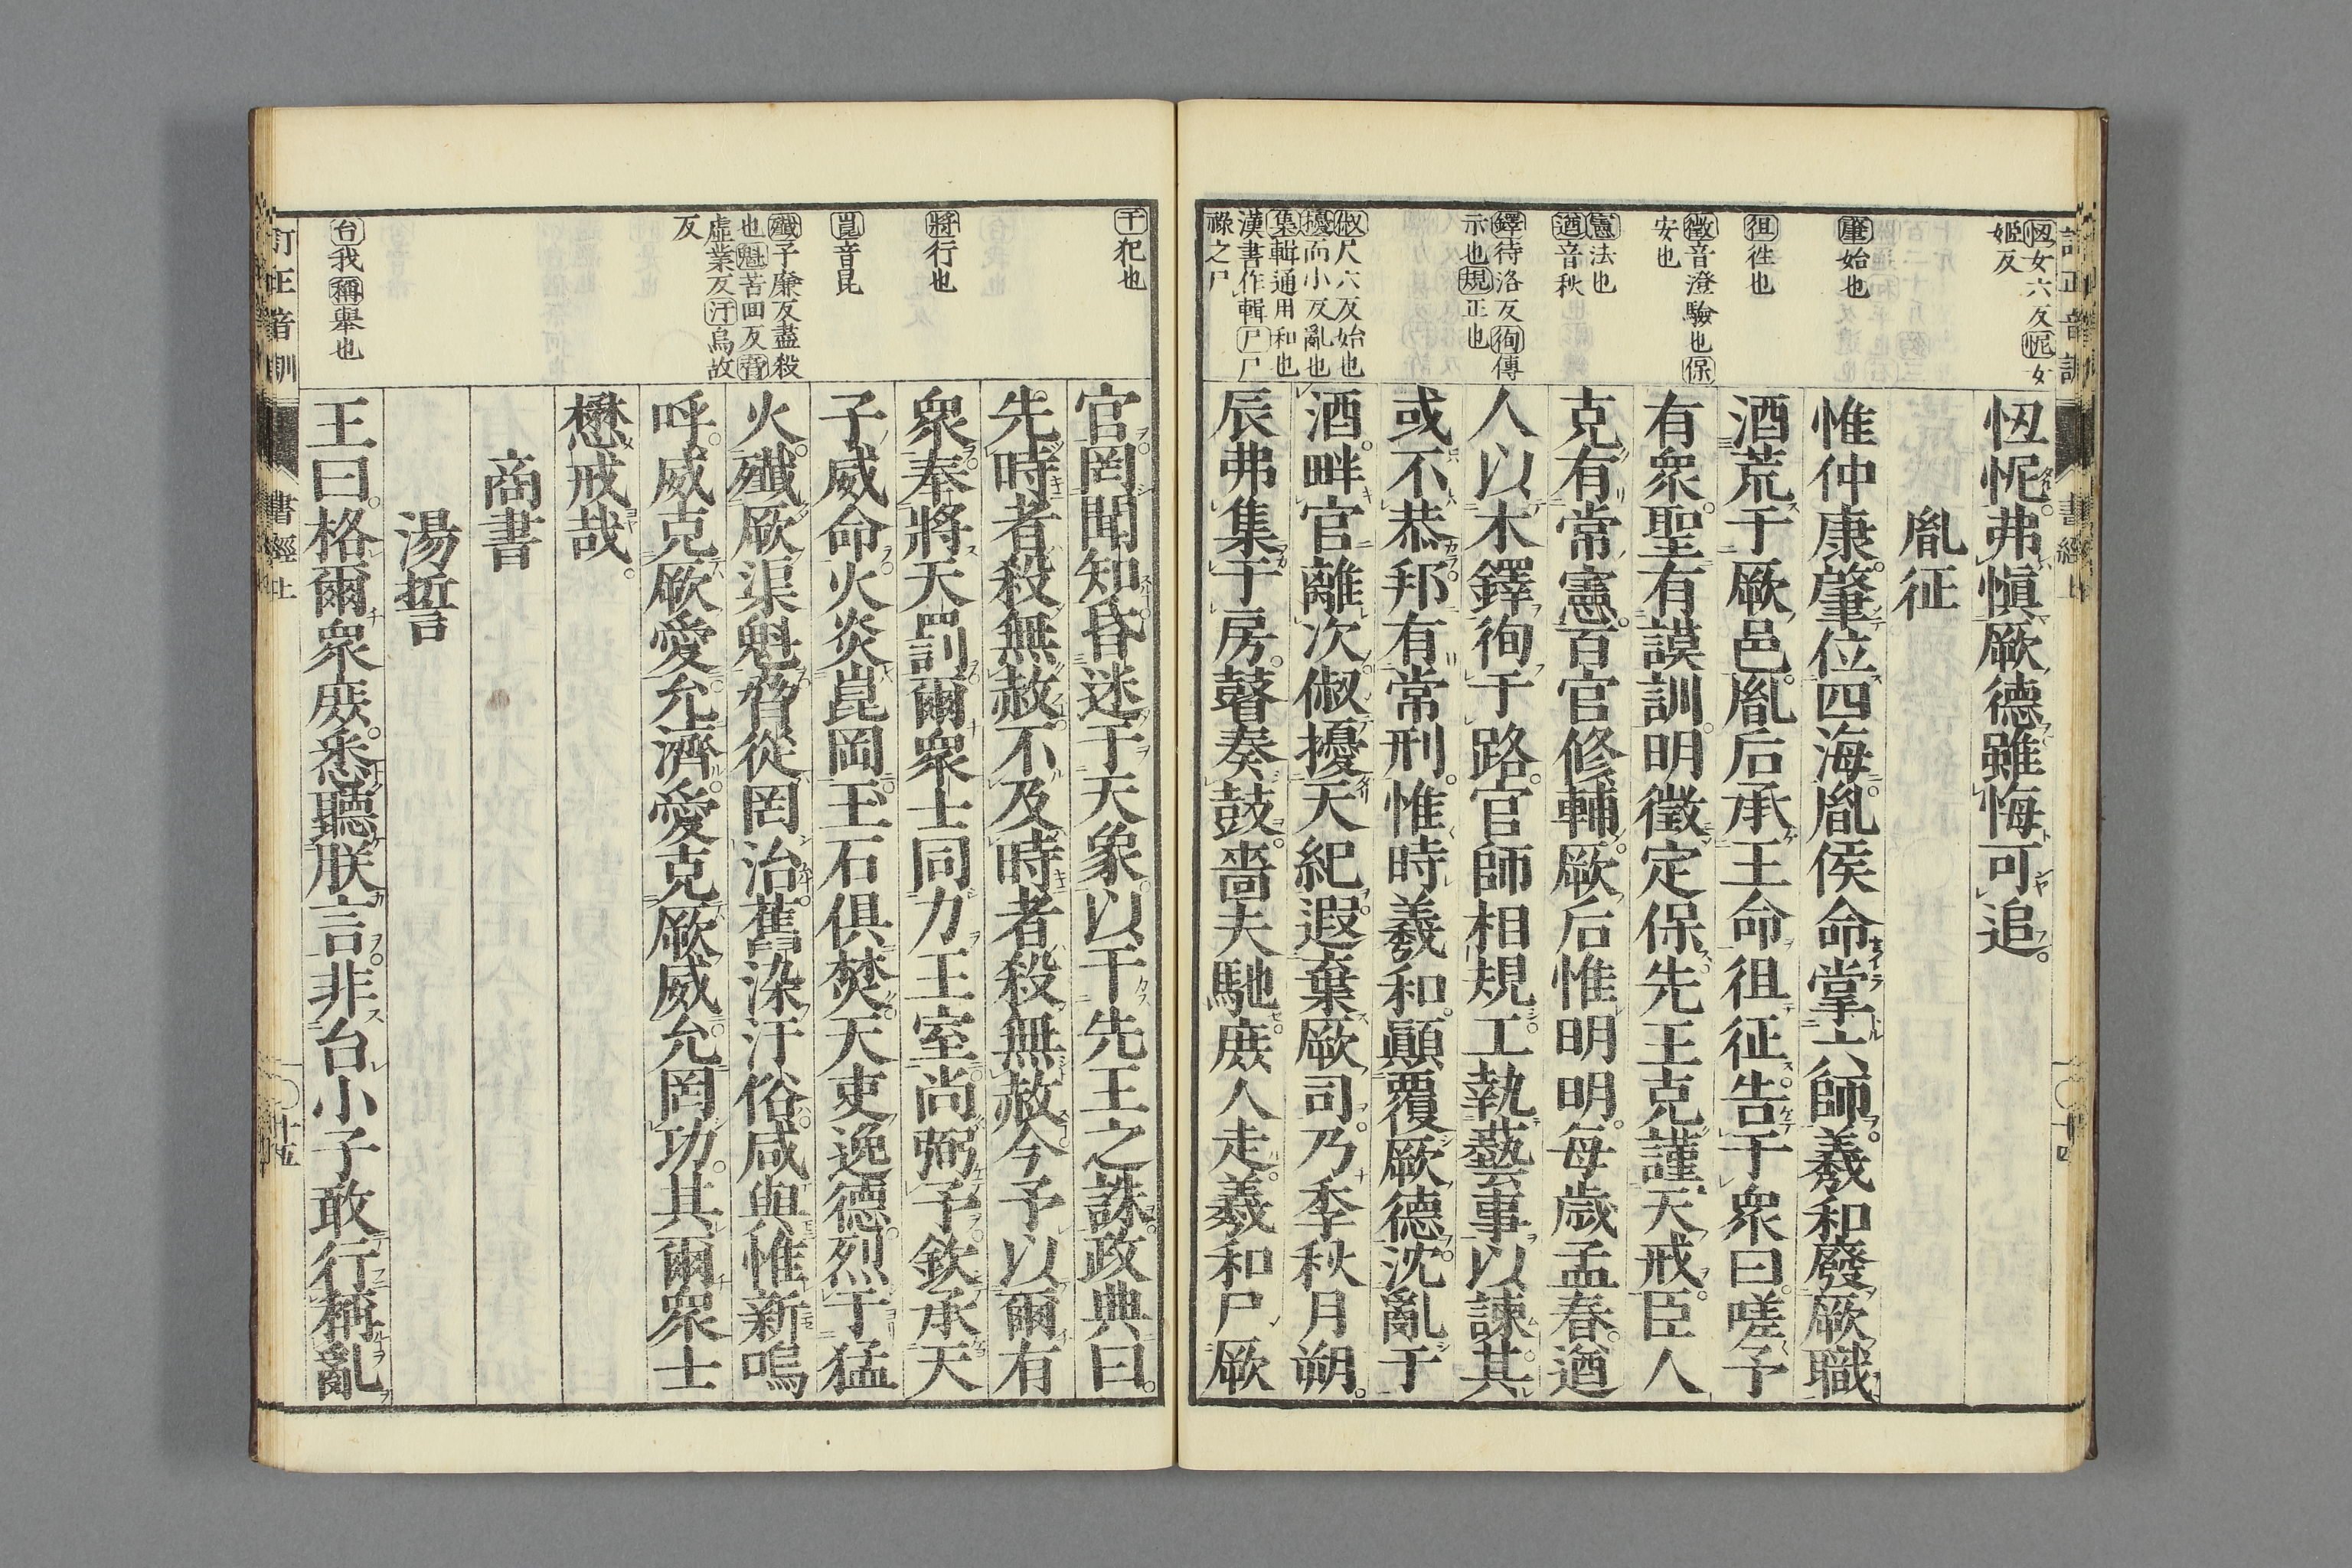 忸女六反怩女
姬反
肇始也
徂往也
徵音澄驗也保
安也
憲法也
遒音秋
鐸待洛反徇傳
示也規正也
俶尺六反始也
擾而小反亂也
集輯通用和也
漢書作輯尸尸
祿之尸
忸怩弗愼厥德雖悔可追
胤征
惟仲康肇位四海胤侯命掌六師羲和廢厥職
酒荒于厥邑胤后承王命徂征告于衆曰嗟予
有衆聖有謨訓明徵定保先王克謹天戒臣人
克有常憲百官修輔厥后惟明明每歲孟春遒
人以木鐸徇于路官師相規工執藝事以諫其
或不恭邦有常刑惟時羲和顚覆厥德沈亂于
酒畔官離次俶擾天紀遐棄厥司乃季秋月朔
辰弗集于房瞽奏鼓嗇夫馳庶人走羲和尸厥
干犯也
將行也
崑音昆
殲子廉反盡殺
也魁苦回反脅
虛業反汙烏故
反
台我稱舉也
官罔聞知昏迷于天象以干先王之誅政典曰
先時者殺無赦不及時者殺無赦今予以爾有
衆奉將天罰爾衆士同力王室尚弼予欽承天
子威命火炎崑岡玉石俱焚天吏逸德烈于猛
火殲厥渠魁脅從罔治舊染汙俗咸與惟新嗚
呼威克厥愛允濟愛克厥威允罔功其爾衆士
懋戒哉
商書
湯誓
王曰格爾衆庶悉聽朕言非台小子敢行稱亂
訂正音訓
書經上
十五